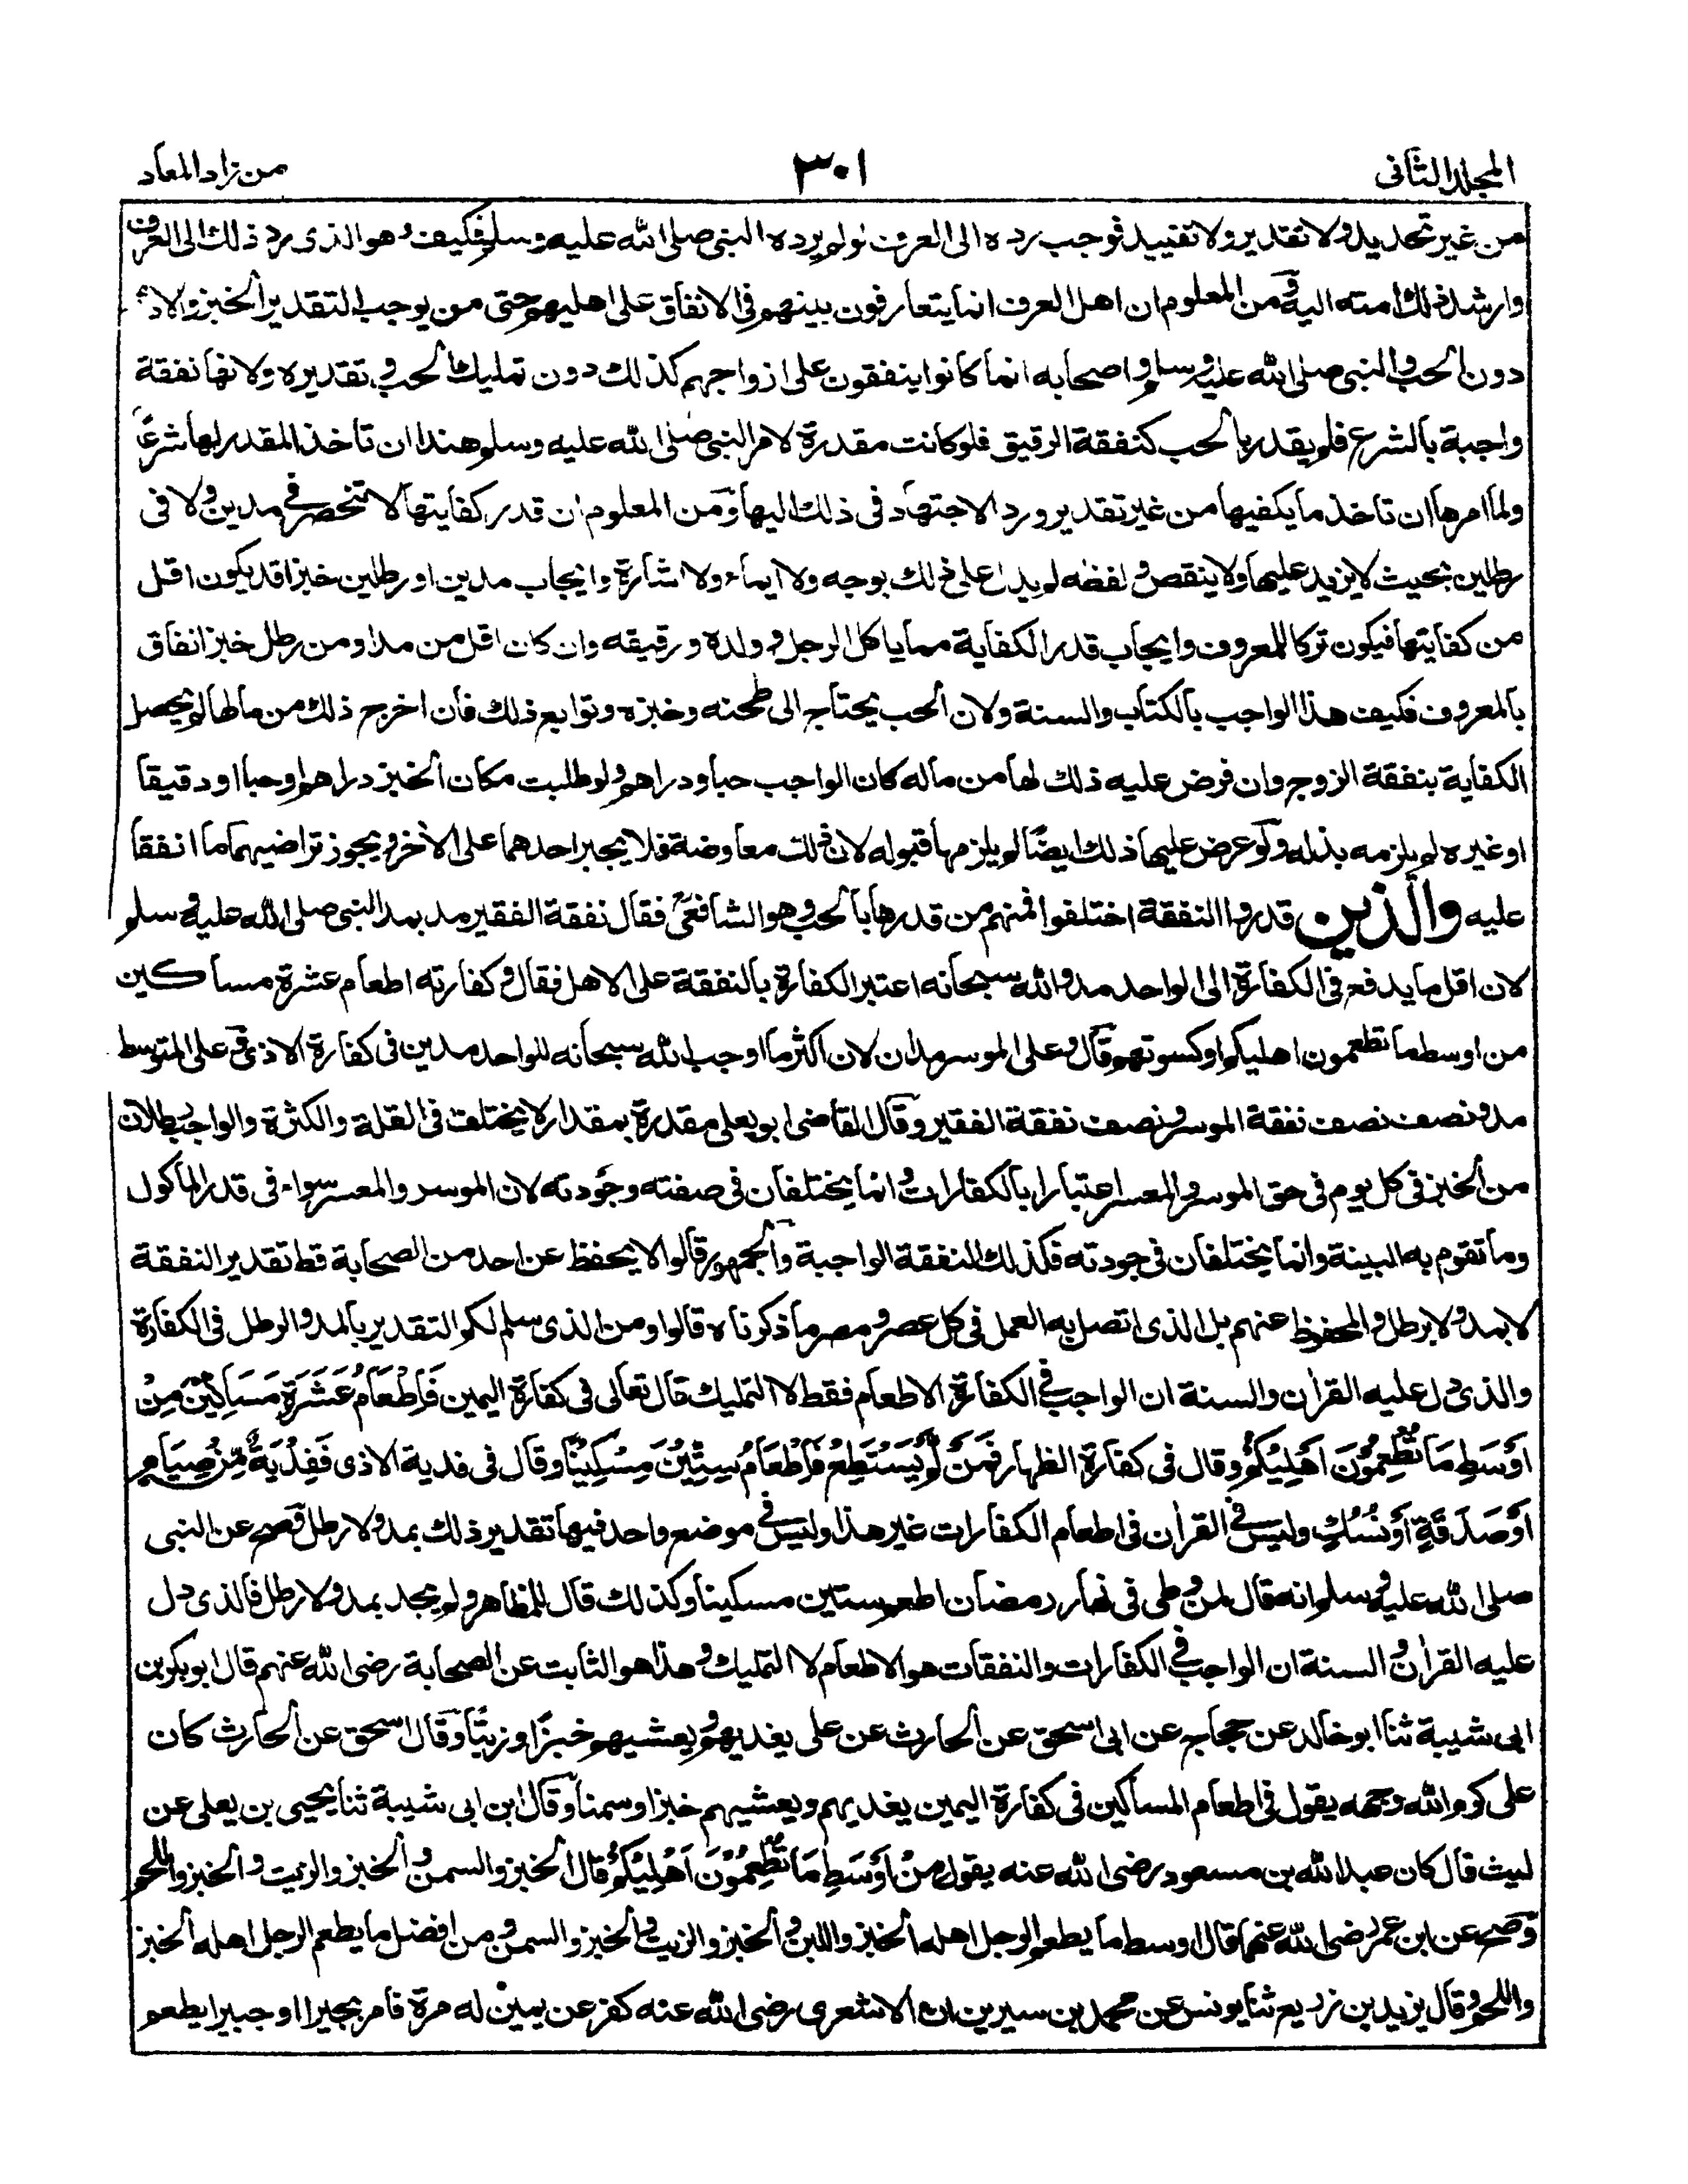 المجلد الثانى
٣٠١
من زاد المعاد
من غير تحديد ولا تقدير ولا تقييد فوجب رده الى العرف لو لم يرده النبى صلى الله عليه وسلم فكيف وهو الذى رد ذلك الى العرف
وارشد ذلك امته اليه ومن المعلوم ان اهل العرف انما يتعارفون بينهم فى الانفاق على اهليهم حتى من يوجب التقدير الخبز والادم
دون الحب والنبى صلى الله عليه وسلم واصحابه انما كانوا ينفقون على ازواجهم كذلك دون تمليك الحب وتقديره ولانها نفقة
واجبة بالشرع فلم يقدر بالحب كنفقة الرقيق فلو كانت مقدرة لامر النبى صلى الله عليه وسلم هندا ان تاخذ المقدر لها شرعا
ولما امرها ان تاخذ ما يكفيها من غير تقدير ورد الاجتهاد فى ذلك اليها ومن المعلوم ان قدر كفايتها لا تنحصر فى مدين ولا فى
رطلين بحيث لا يزيد عليهما ولا ينقص ولفظه لم يدل على ذلك بوجه ولا ايماء ولا اشارة وايجاب مدين او رطلين خبزا قد يكون اقل
من كفايتها فيكون تركا للمعروف وايجاب قدر الكفاية مما ياكل الرجل وولده ورقيقه وان كان اقل من مد او من رطل خبز انفاق
بالمعروف فكيف هذا الواجب بالكتاب والسنة ولان الحب يحتاج الى طحنه وخبزه وتوابع ذلك فان اخرج ذلك من مالها لم يحصل
الكفاية بنفقة الزوج وان فرض عليه ذلك لها من ماله كان الواجب حبا ودراهم ولو طلبت مكان الخبز دراهم او حبا او دقيقا
او غيره لم يلزمه بذله ولو عرض عليها ذلك ايضا لم يلزمها قبوله لان ذلك معاوضة فلا يجبر احدهما على الاخر ويجوز تراضيهما ما اتفقا
عليه والذين قدروا النفقة اختلفوا فمنهم من قدرها بالحب وهو الشافعى فقال نفقة الفقير مد بمد النبى صلى الله عليه وسلم
لان اقل ما يدفع فى الكفارة الى الواحد مد والله سبحانه اعتبر الكفارة بالنفقة على الاهل فقال وكفارته اطعام عشرة مساكين
من اوسط ما تطعمون اهليكم او كسوتهم قال وعلى الموسر مدان لان اكثر ما اوجب الله سبحانه للواحد مدين فى كفارة الاذى وعلى المتوسط
مد ونصف نصف نفقة الموسر ونصف نفقة الفقير وقال القاضى ابو يعلى مقدرة بمقدار لا يختلف فى القلة والكثرة والواجب رطلان
من الخبز فى كل يوم فى حق الموسر والمعسر اعتبارا بالكفارات وانما يختلفان فى صفته وجودته لان الموسر والمعسر سواء فى قدر الماكول
وما تقوم به البينة وانما يختلفان فى جودته فكذلك النفقة الواجبة والجمهور قالوا لا يحفظ عن احد من الصحابة قط تقدير النفقة
لا بمد ولا برطل والمحفوظ عنهم بل الذى اتصل به العمل فى كل عصر ومصر ما ذكرناه قالوا ومن الذى سلم لكم التقدير بالمد والرطل فى الكفارة
والذى دل عليه القران والسنة ان الواجب فى الكفارة الاطعام فقط لا التمليك قال تعالى فى كفارة اليمين فَاِطْعَامُ عَشَرَةِ مَسَاكِيْنَ مِنْ
اَوْسَطِ مَا تُطْعِمُوْنَ اَهْلِيْكُمْ وقال فى كفارة الظهار فَمَنْ لَّمْ يَسْتَطِعْ فَاِطْعَامُ سِتِّيْنَ مِسْكِيْنًا وقال فى فدية الاذى فَفِدْيَةٌ مِّنْ صِيَامٍ
اَوْ صَدَقَةٍ اَوْ نُسُكٍ وليس فى القران فى اطعام الكفارات غير هذا وليس فى موضع واحد فيها تقدير ذلك بمد ولا رطل وصح عن النبى
صلى الله عليه وسلم انه قال لمن وطى فى نهار رمضان اطعم ستين مسكينا وكذلك قال للمظاهر ولم يحد بمد ولا رطل فالذى دل
عليه القران والسنة ان الواجب فى الكفارات والنفقات هو الاطعام لا التمليك وهذا هو الثابت عن الصحابة رضى الله عنهم قال ابو بكر بن
ابى شيبة ثنا ابو خالد عن حجاج عن ابى اسحق عن الحارث عن على يغديهم ويعشيهم خبزا وزيتا وقال اسحق عن الحارث كان
على كرم الله وجهه يقول فى اطعام المساكين فى كفارة اليمين يغديهم ويعشيهم خبزا وسمنا وقال ابن ابى شيبة ثنا يحيى بن يعلى عن
ليث قال كان عبد الله بن مسعود رضى الله عنه يقول مِنْ اَوْسَطِ مَا تُطْعِمُوْنَ اَهْلِيْكُمْ قال الخبز والسمن والخبز والزيت والخبز واللحم
وصح عن ابن عمر رضى الله عنهما قال اوسط ما يطعم الرجل اهله الخبز واللبن والخبز والزيت والخبز والسمن ومن افضل ما يطعم الرجل اهله الخبز
واللحم وقال يزيد بن زريع ثنا يونس عن محمد بن سيرين ان الاشعرى رضى الله عنه كفر عن يمين له مرة فامر بجيرا او جبيرا يطعم